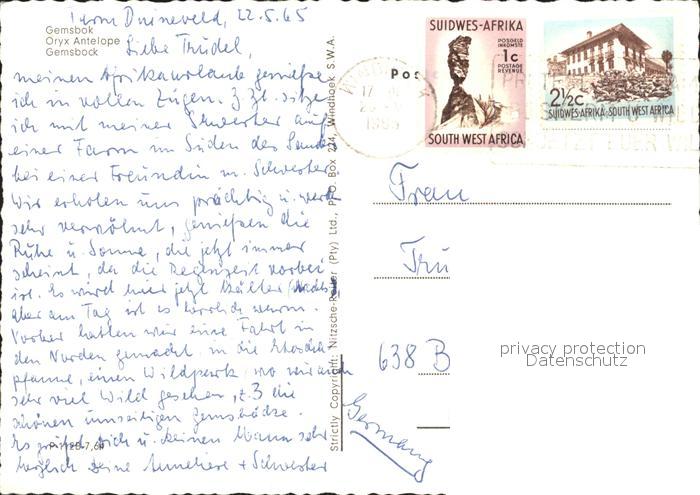 Farm Duineveld, 22.5.65
Gemsbok
Oryx Antelope
Gemsbock
Liebe Trudel,
meinen Afrikaurlaub genieße
ich in vollen Zügen. Z. Zt. sitze
ich mit meiner Schwester auf
einer Farm im Süden des Landes
bei einer Freundin m. Schwester.
Wir erholen uns prächtig u. werden
sehr verwöhnt, genießen die
Ruhe u. Sonne, die jetzt immer
scheint, da die Regenzeit vorbei
ist. Es wird hier jetzt kälter (nachts),
aber am Tag ist es herrlich warm.
Vorher hatten wir eine Fahrt in
den Norden gemacht, in die Etoscha
pfanne, einen Wildpark, wo wir auch
sehr viel Wild gesehen, z.B. die
schönen umseitigen Gemsböcke.
Es grüßt Dich u. Deinen Mann sehr
herzlich Deine Anneliese + Schwester
P-1128-7,64
Strictly Copyright: Nitzsche-Reiter (Pty) Ltd., P.O. Box 224, Windhoek S.W.A.
Pos
WINDHOEK
1965
SUIDWES-AFRIKA
POSGELD
INKOMSTE
1c
POSTAGE
REVENUE
SOUTH WEST AFRICA
2½c
SUIDWES-AFRIKA·SOUTH WEST AFRICA
Frau
Tru
638 B
Germany
privacy protection
Datenschutz